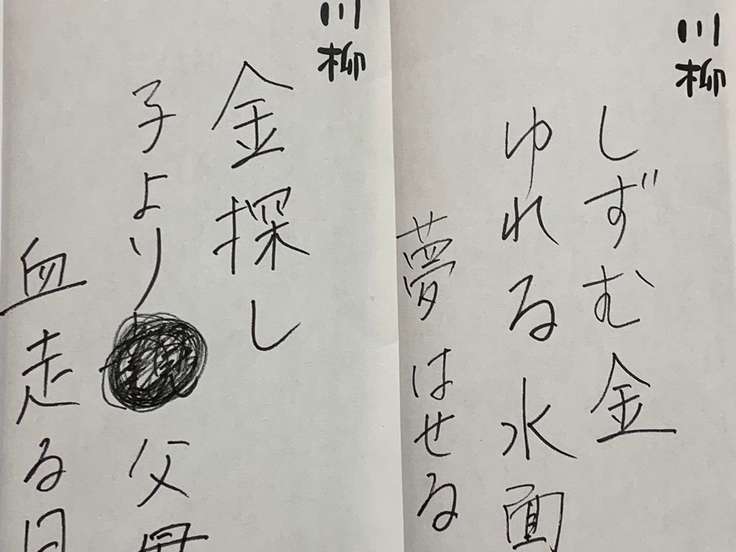 川柳
しずむ金
ゆれる水面
夢はせる
川柳
金探し
子より父母
血走る目